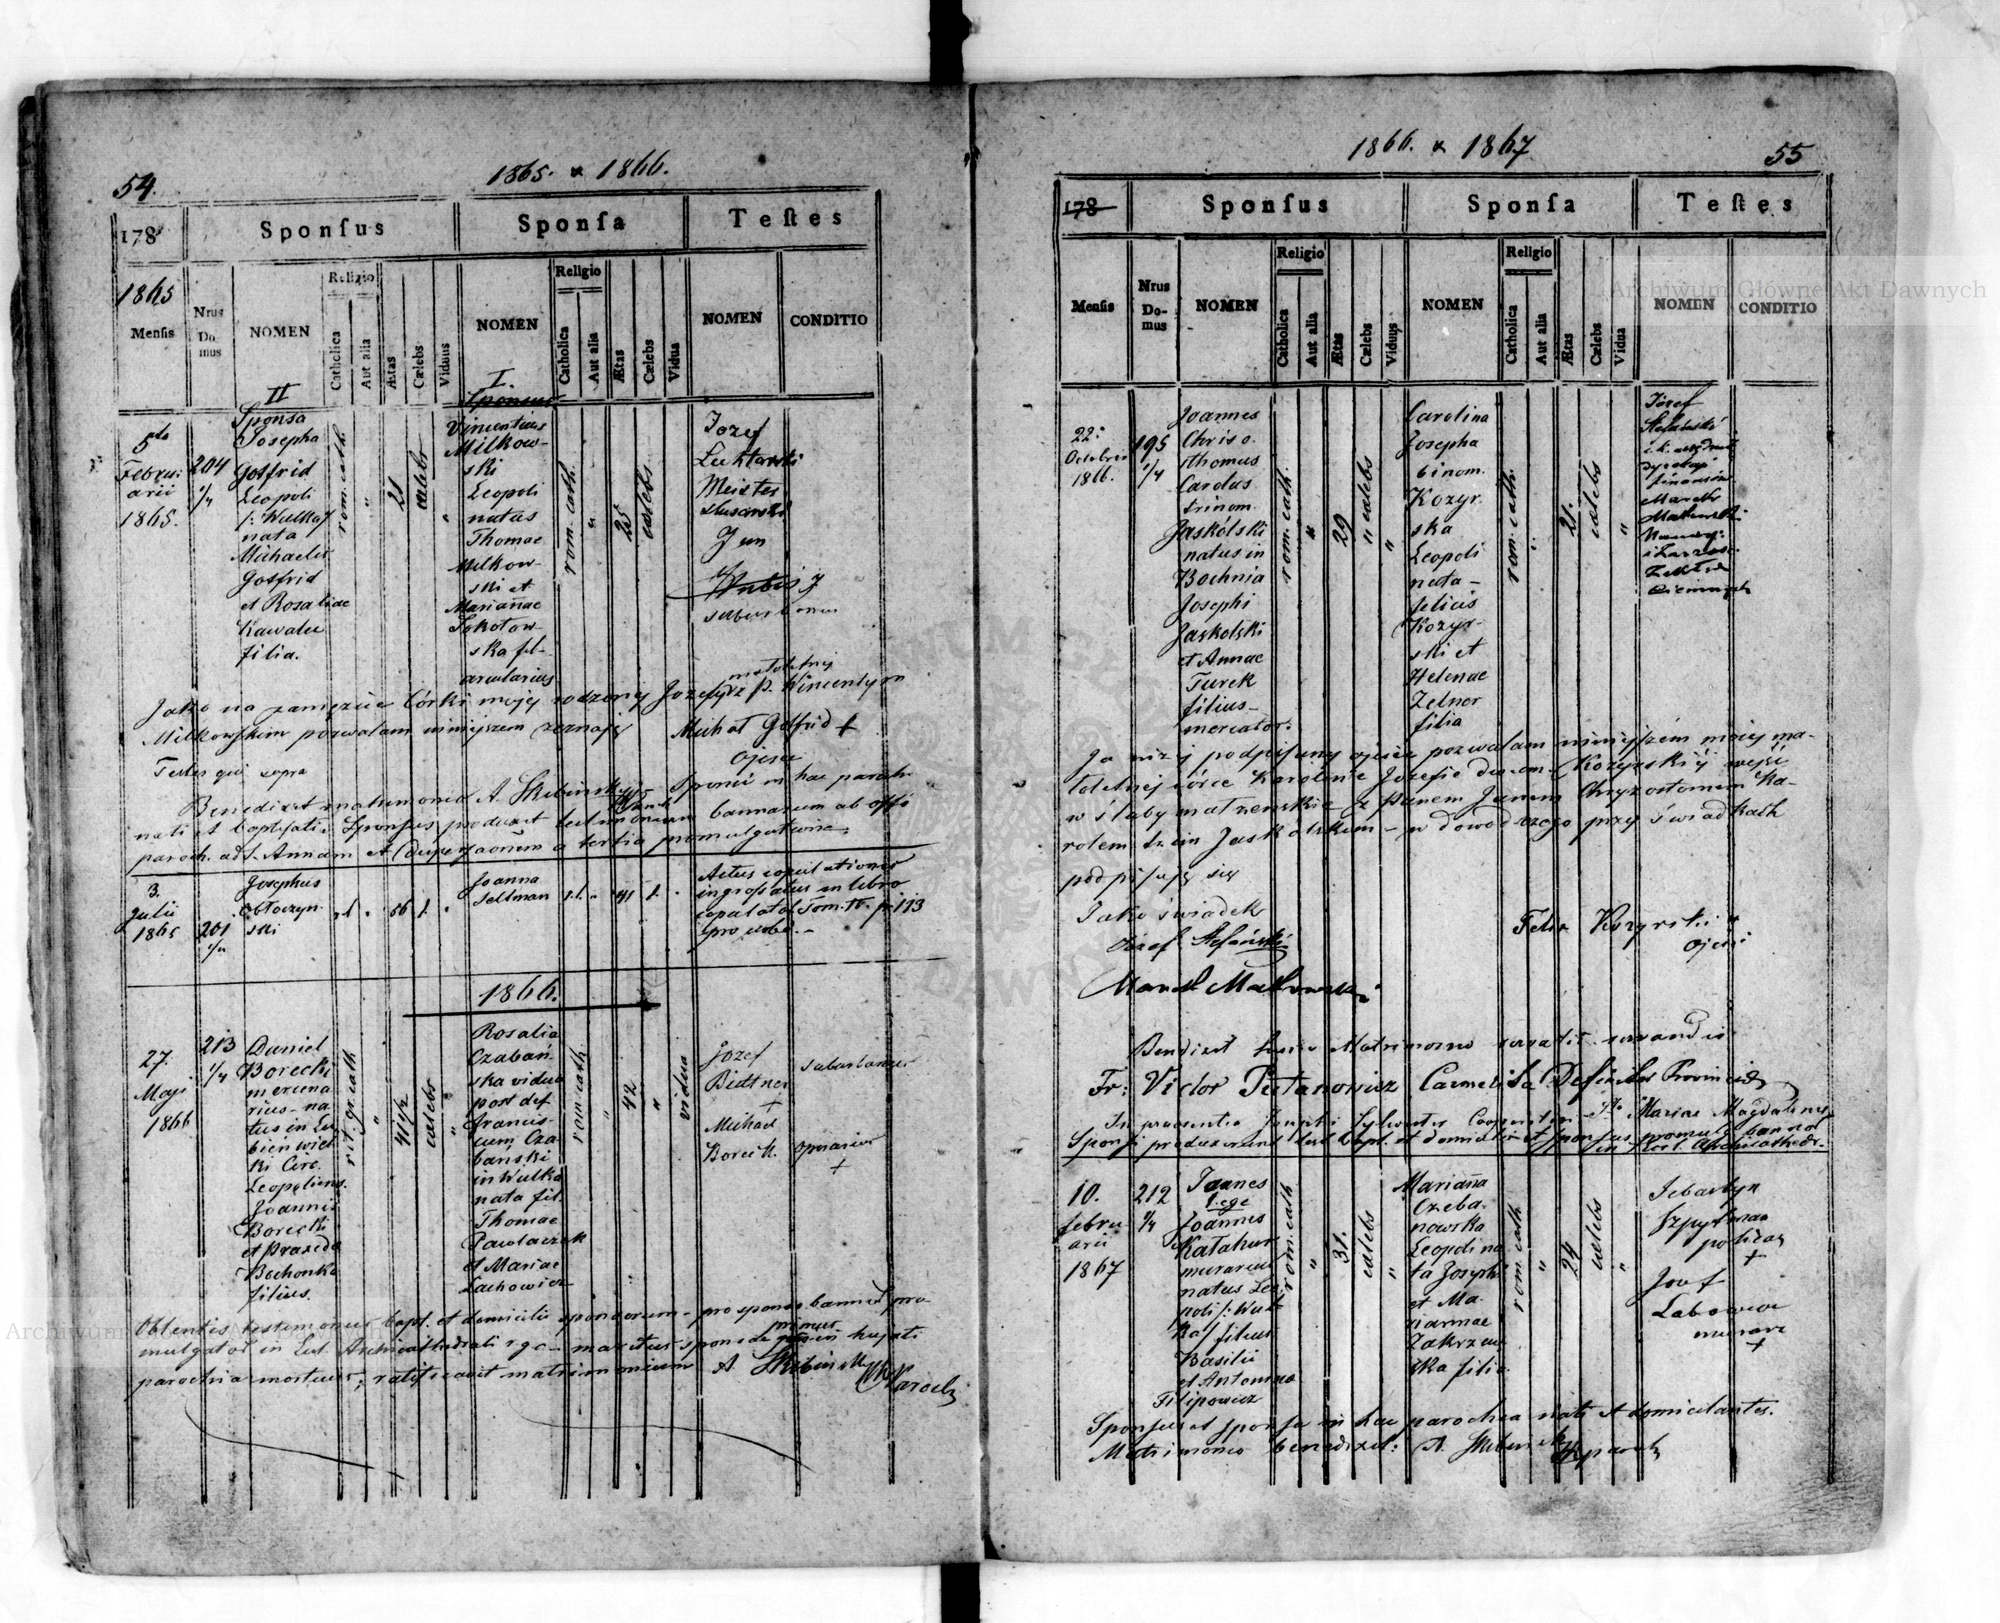 54.
1865. & 1866.
178
Sponſus
Sponſa
Teſtes
1865
Menſis
Nrus Domus
NOMEN
Religio
Catholica
Aut alia
Ætas
Cælebs
Viduus
NOMEN
Religio
Catholica
Aut alia
Ætas
Cælebs
Vidua
NOMEN
CONDITIO
5ta
Februarii
1865.
204
1/4
II
Sponsa
Josepha
Gosfrid
Leopoli
/: Wulka /
nata
Michaelis
Gosfrid
et Rosaliae
Kawalec
filia.
rom. cath.
21
caelebs
I.
Sponsus
Vincentius
Milkow-
ski
Leopoli
natus
Thomae
Milkow-
ski et
Mariannae
Sokołow-
ska fil-
arcularius
rom. cath.
25
caelebs
Jozef
Meister
suburbanus
małoletniej
Jako na zamęzcie Córki mojéj rodzonéj Jozefy z p. Wincentym
Milkowskim pozwalam niniejszem zeznaję
Michał Gosfrid +
Ojciec
Testes qui supra
Benedixit matrimonio A. Skibinski Sponsi in hac paroch.
nati et baptisati. Sponsus produxit testimonium bannorum ab offo
paroch. ad S. Annam et dispensationem a tertia promulgatione
3.
Julii
1865
201
1/4
Josephus
Obtoczyn-
ski
r.l.
56
Joanna
Seltman
r.l.
41
Actus copulationis
ingrossatus in libro
copulator. Tom. IV. p. 113
pro urbe. -
1866.
27.
Maji
1866
213
1/4
Daniel
Borecki
mercena
rius - na
tus in Lu
bień wiel
ki Circ.
Leopoliens.
Joannis
Borecki
et Praxeda
Bochonko
filius.
rit. gr. cath
41 1/2
caelebs
Rosalia
Czabań-
ska vidua
post def
Francis-
cum Cza
banski
in Wulka
nata fil.
Thomae
Pawlaczek
et Mariae
Lachowicz
rom. cath
42
vidua
Jozef
Bidtner
+
suburbanus
Michał
Borecik
operarius
+
Obtentis testimoniis bapt. et domicilii sponsorum - pro sponso bannis pro
mulgatis in Ecl. Archicathedrali r.g.c. - maritus sponsae primus hujati
parochia mortuus; ratificavit matrimonium A. Skibinski Paroch
1866. & 1867
55
178
Sponſus
Sponſa
Teſtes
Menſis
Nrus Domus
NOMEN
Religio
Catholica
Aut alia
Ætas
Cælebs
Viduus
NOMEN
Religio
Catholica
Aut alia
Ætas
Cælebs
Vidua
NOMEN
CONDITIO
22.
Octobris
1866.
195
1/4
Joannes
Chriso.
Thomus
Carolus
trinom.
Jaskólski
natus in
Bochnia
Josephi
Jaskolski
et Annae
Turek
filius -
mercator.
rom. cath.
29
caelebs
Carolina
Josepha
binom.
Kozyr
ska
Leopoli
nata -
felicis
Kozyr-
ski et
Helenae
Zelner
filia
rom. cath.
21.
caelebs
Józef
Stefański
Marceli
Malkowski
Ja niżej podpisany ojciec pozwalam niniejszém mojej ma-
łoletniej córce Karolinie Jozefie dwoim. Kozyrskiéj wejść
w śluby małzenskie z Panem Janem Chryzostomem Ka-
rolem trzim Jaskolskim - w dowód czego przy świadkach
podpisuję się
Jako świadek
Józef Stefański
Felix Kozyrski
Ojciec
Marceli Malkowski
Benedixit huic Matrimonio servatis servandis
Fr: Victor Pertanowicz Carmelita Definitor Provinciae
In praesentia Josephi Sylvester Cooperator ad S. Mariae Magdalenae
Sponsi produxerunt test. bapt. et domicilii et sponsus promulg. bannor
in Eccl. Archicathedr.
10.
februarii
1867
212
1/4
Joanes
lege
Joannes
Katahur
murarius
natus Leo
poli /: Wul
ka / filius
Basilii
et Antonina
Filipowicz
rom. cath
31.
caelebs
Marianna
Czeba-
nowska
Leopoli na
ta Josephi
et Ma-
riannae
Zakrzew
ska filia
rom. cath
24
caelebs
Sebastyn
Szpytman
policaj
+
Jozef
Labowicz
murarz
+
Sponsus et sponsa in hac parochia nati et domicilantes.
Matrimonio benedixit: A. Skibinski paroch
Archiwum Główne Akt Dawnych